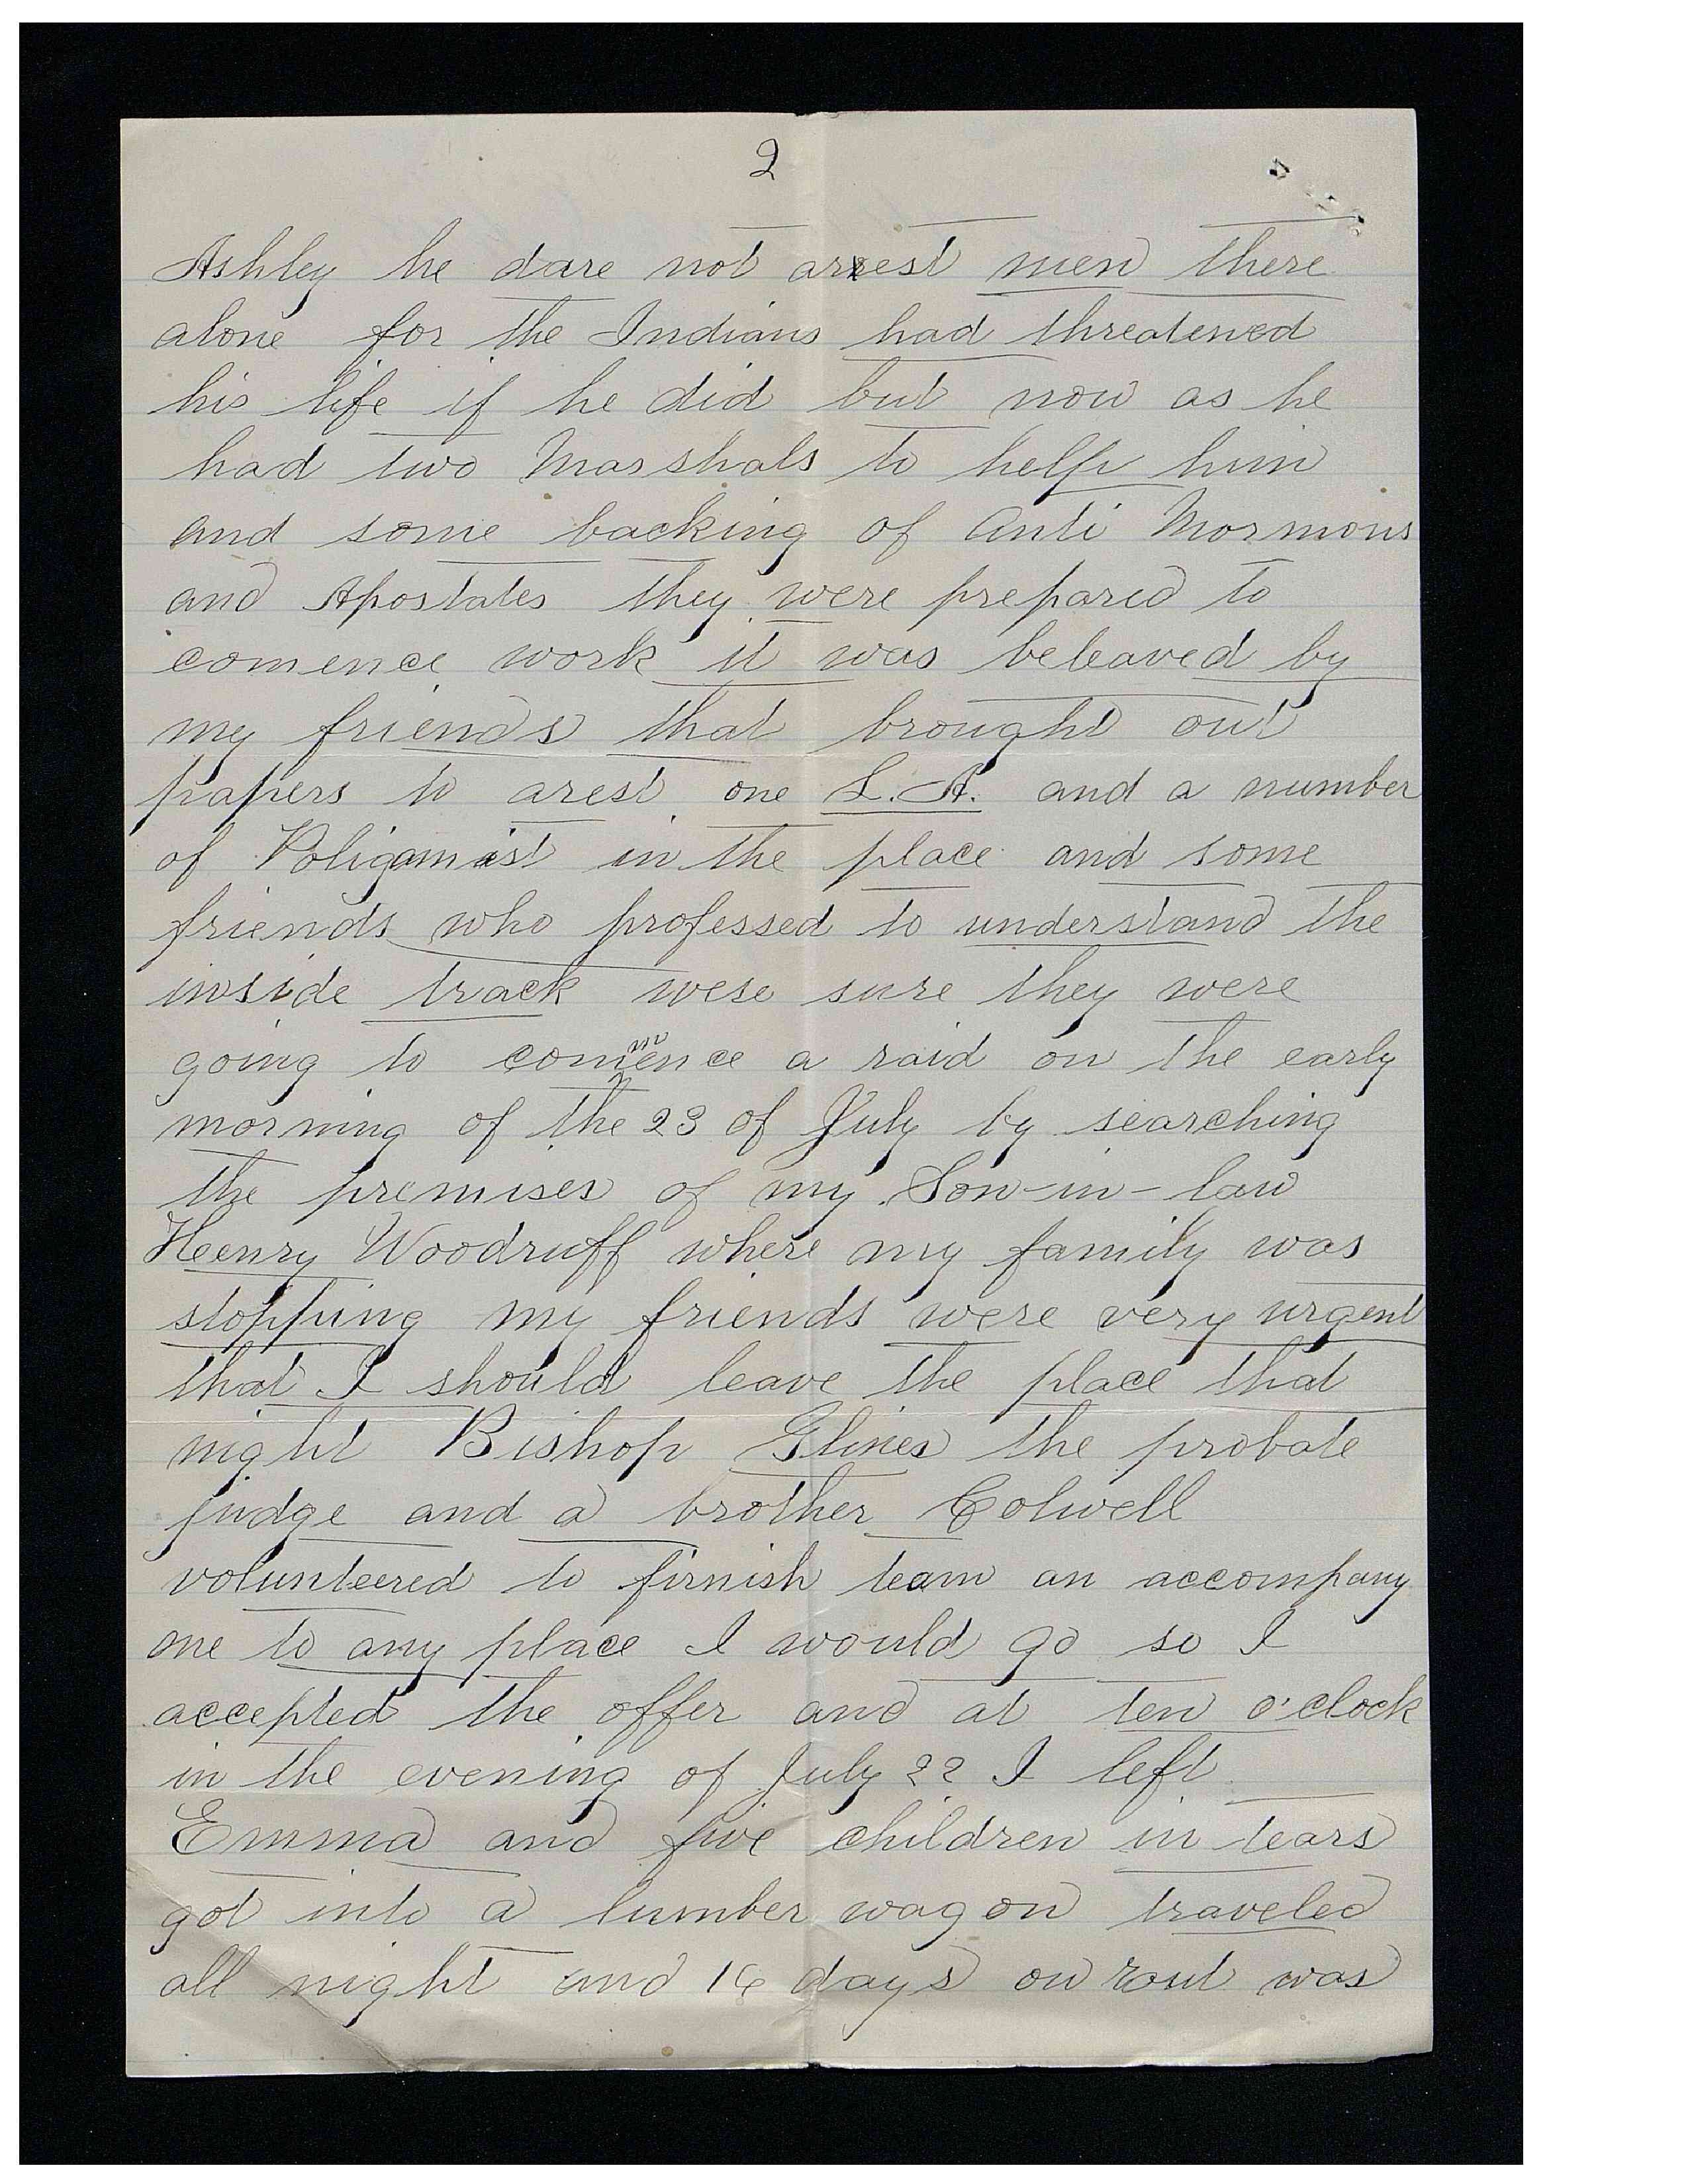 2
Ashley he dare not arrest men there
alone for the Indians had threatened
his life if he did but now as he
had two Marshals to help him
and some backing of Anti Mormons
and Apostates they were prepared to
comence work it was beleaved by
my friends that brought out
papers to arest one L. A. and a number
of Poligamist in the place and some
friends who professed to understand the
inside track were sure they were
going to commence a raid on the early
morning of the 23 of July by searching
the premises of my Son-in-law
Heenry Woodruff where my family was
stopping my friends were very urgent
that I should leave the place that
night Bishop Glines the probate
judge and a brother Colwell
volunteered to firnish team an accompany
me to any place I would go so I
accepted the offer and at ten o'clock
in the evening of July 22 I left
Emma and five children in tears
got into a lumber wagon traveled
all night and 16 days on rout was